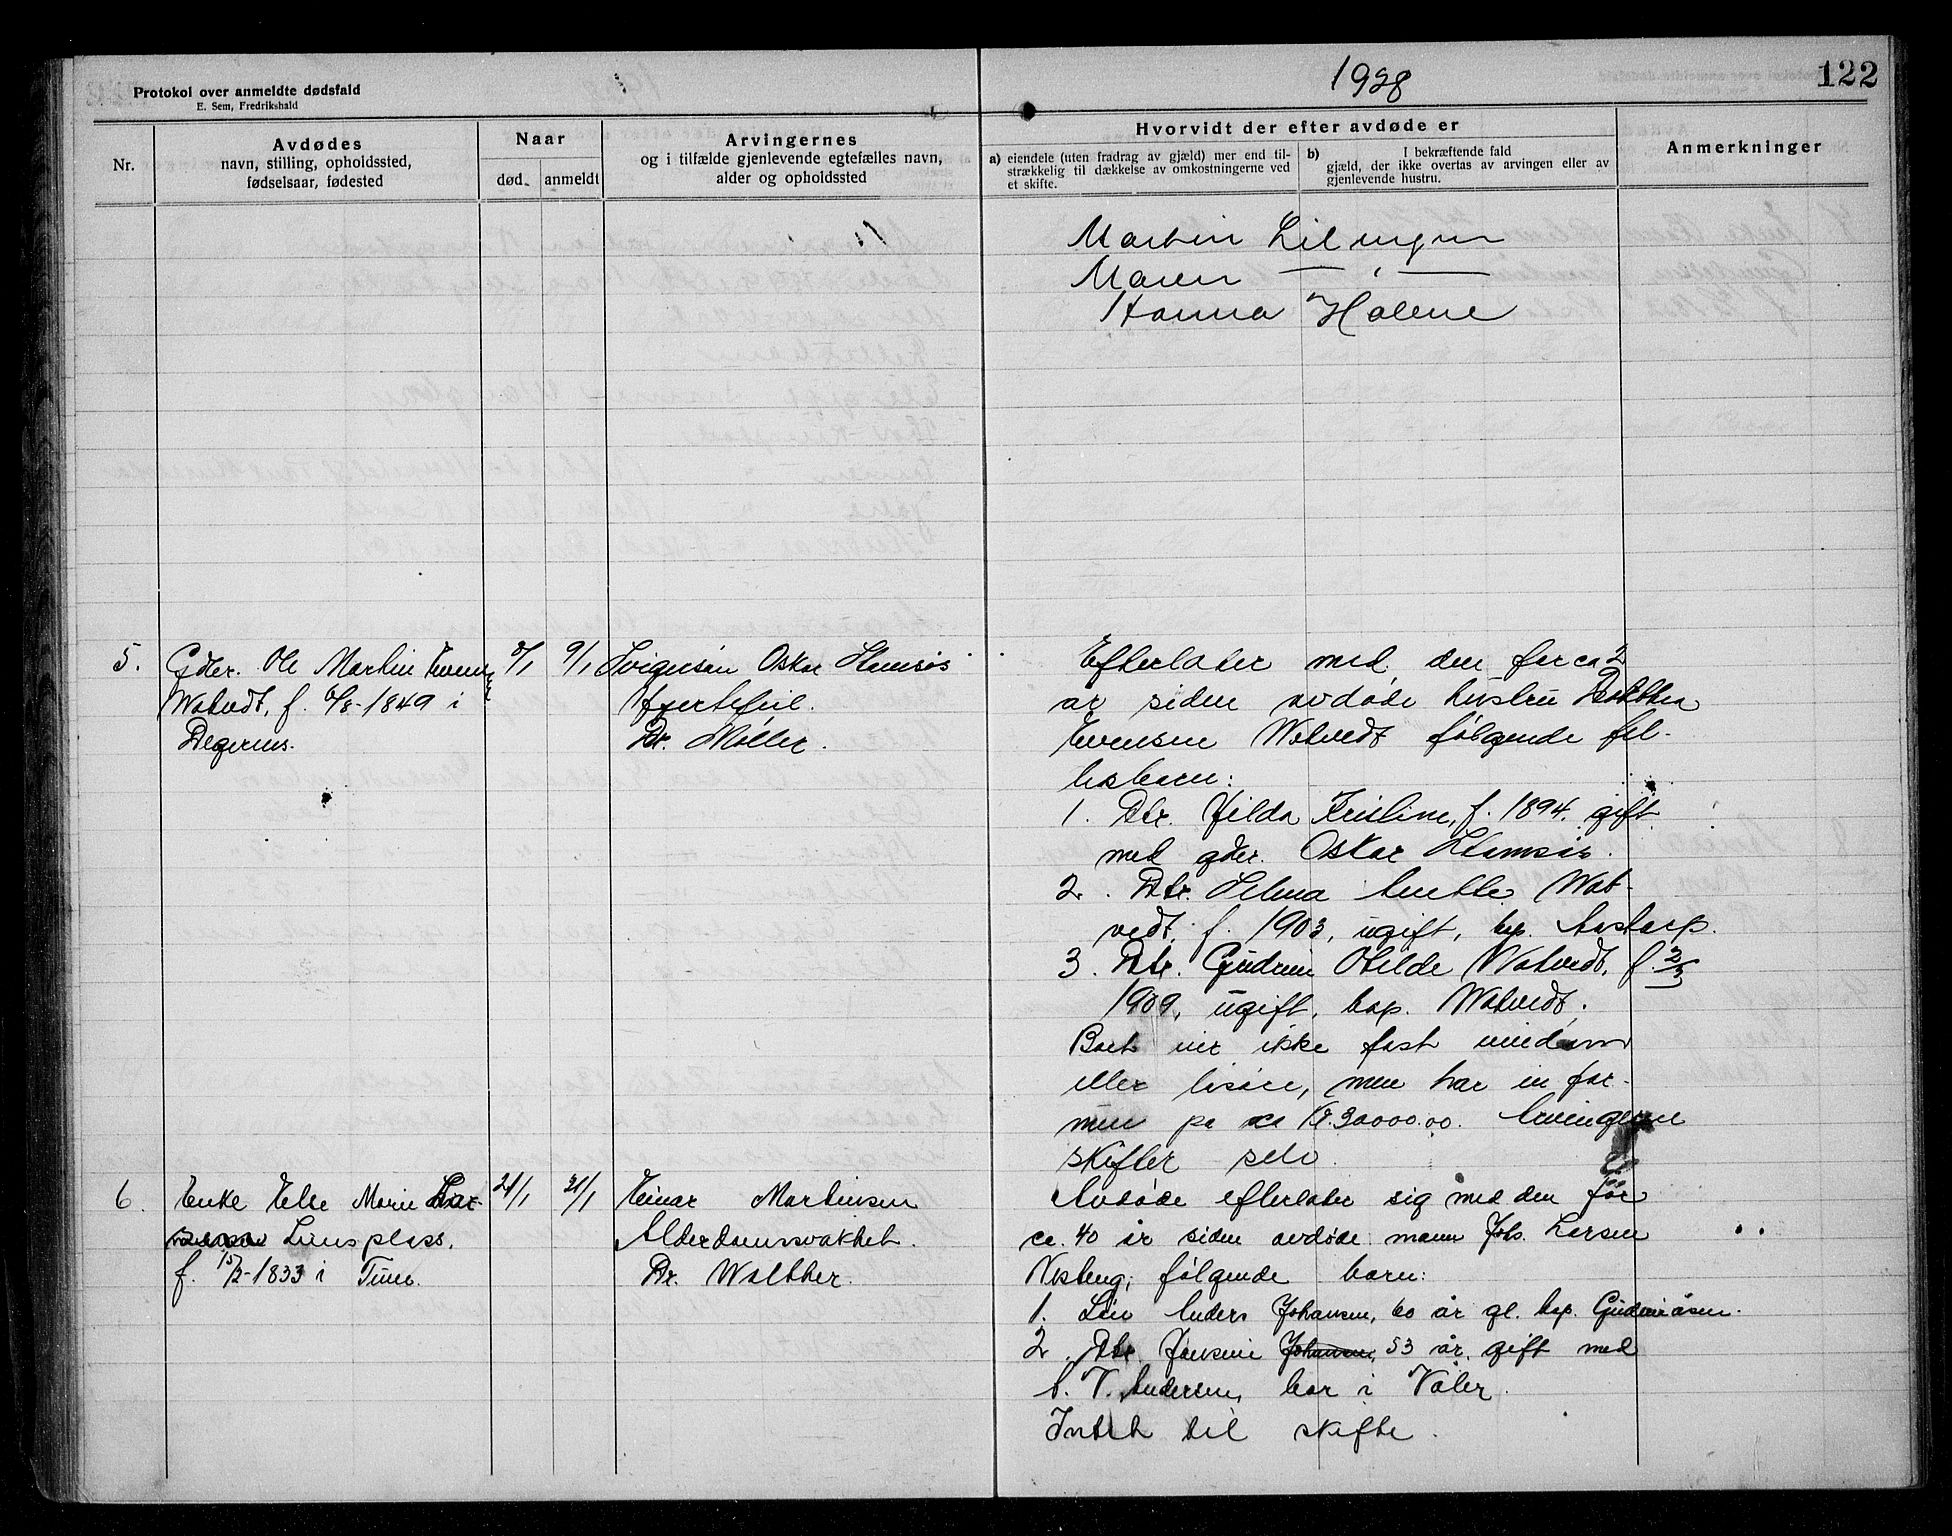 Protokol over anmeldte dødsfald
E. Sem, Fredrikshald
1928
122
Nr.
Avdødes
navn, stilling, opholdssted,
fødselsaar, fødested
Naar
død.
anmeldt
Arvingernes
og i tilfælde gjenlevende egtefælles navn,
alder og opholdssted
Hvorvidt der efter avdøde er
a) eiendele (uten fradrag av gjæld) mer end til-
strækkelig til dækkelse av omkostningerne ved
et skifte.
b) I bekræftende fald
gjæld, der ikke overtas av arvingen eller av
gjenlevende hustru.
Anmerkninger
Martin
Maren
Hanna
5.
Gdbr. Ole Martin Evensen
Watvedt, f. 6/8-1849 i
Degernes.
9/1
Svigersøn Oskar
Hjertefeil.
Dr. Møller.
Efterlater med den for ca 2
år siden avdøde hustru
Evensen Watvedt følgende fel-
lesbarn:
1. Dtr. Hilda Kristine, f. 1894, gift
med gbr. Oskar
2. Dtr. Selma Anette Wat-
vedt, f. 1903, ugift, bp.
3. Dtr. Gudrun Otilde Watvedt, f. 2/3
1909, ugift, bop. Watvedt.
Boet eier ikke fast eiendom
eller løsøre, men har en for-
mue på ca kr. 30000.00. Arvingerne
skifter selv.
6.
Enke Else Marie Lar-
Lunsplass,
f. 15/2-1833 i Tune.
21/1
21/1
Einar Martinsen
Alderdomssvakhet.
Dr. Walther.
Avdøde efterlater sig med den for
ca. 40 år siden avdøde mann Johs. Larsen
følgende barn:
1. Søn Anders Johansen, 60 år gl. bop.
2. Dtr. Jensine Johansen, 53 år, gift med
A. V. Andersen, bor i Våler.
Intet til skifte.